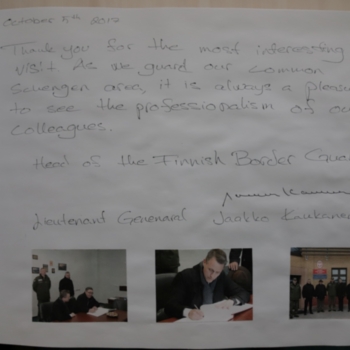 October 5th 2012
Thank you for the most interesting
visit. As we guard our common
Schengen area, it is always a pleasu
to see the professionalism of ou
colleagues.
Head of the Finnish Border Guar
Lieutenant Genenaral Jaakko Kaukane